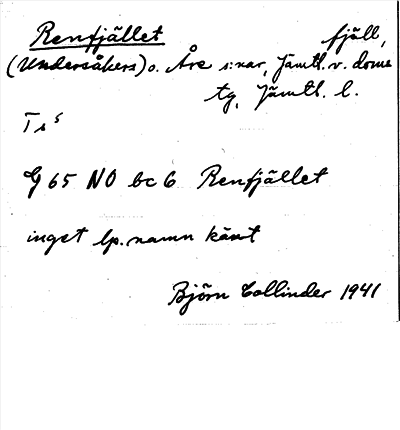 Renfjället fjäll,
(Undersåkers) o. Åre s:nar, Jämtl. v. doms
tg, Jämtl. l.
Ts s
G 65 NO bc 6 Renfjället
inget lp. namn känt
Björn Collinder 1941